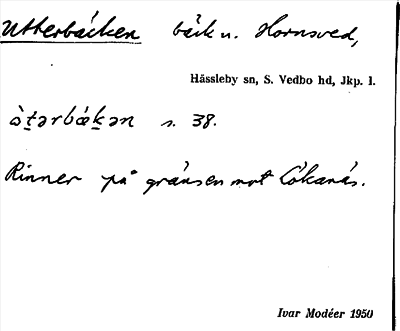 Utterbäcken bäck u. Hornsved,
Hässleby sn, S. Vedbo hd, Jkp. l.
s. 38.
Rinner på gränsen mot Lökanäs.
Ivar Modéer 1950